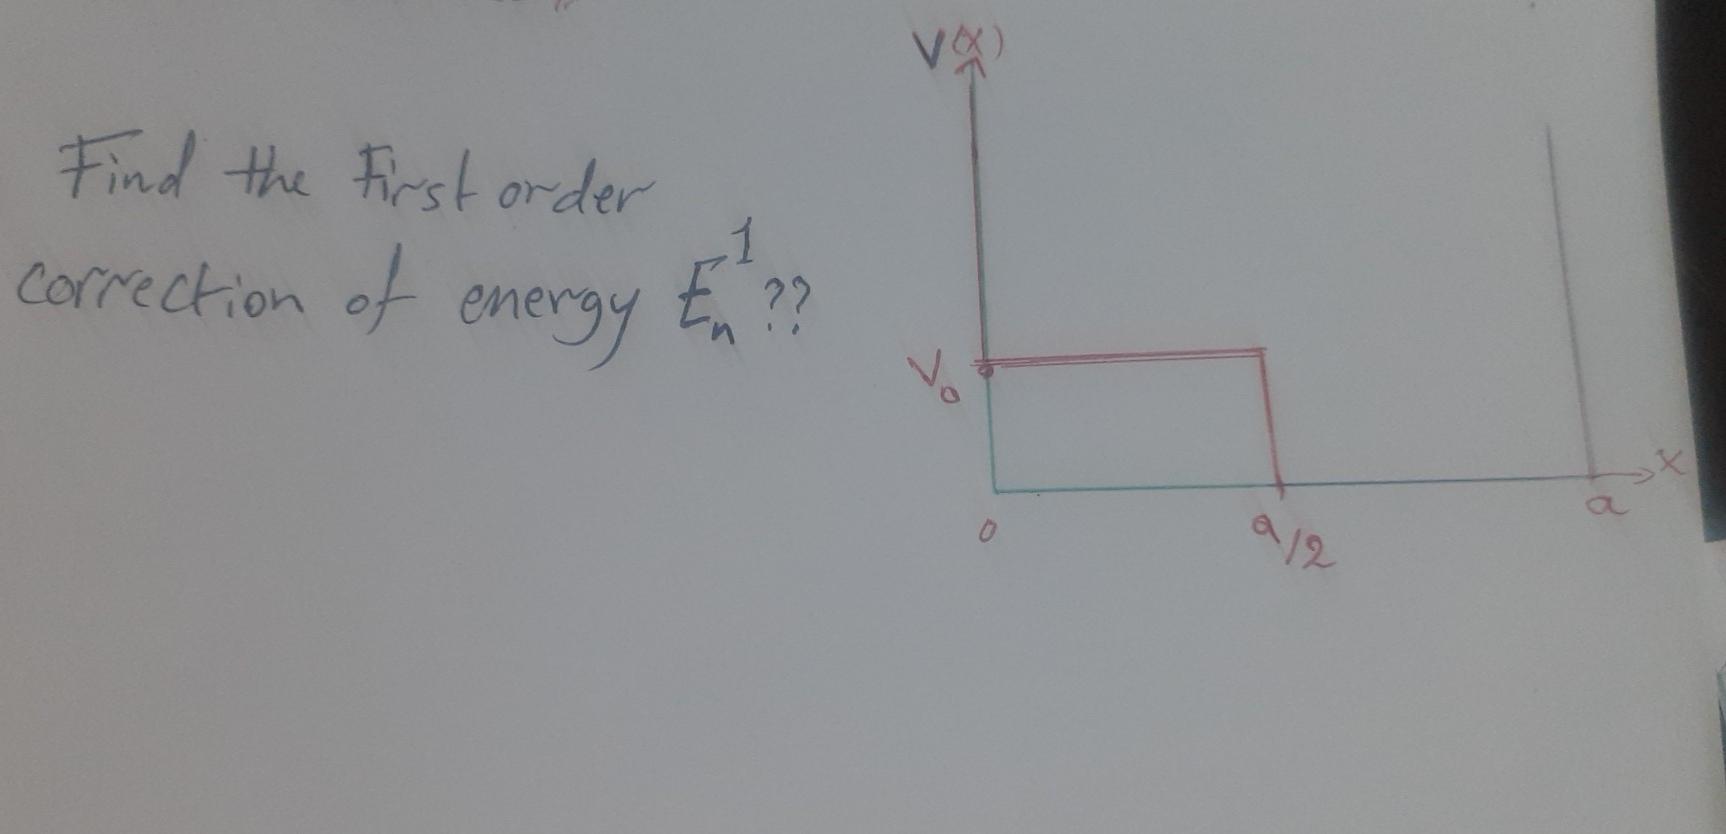 Find the First order
correction of energy Eₙ¹??
V(x)
V₀
x
0
a/2
a